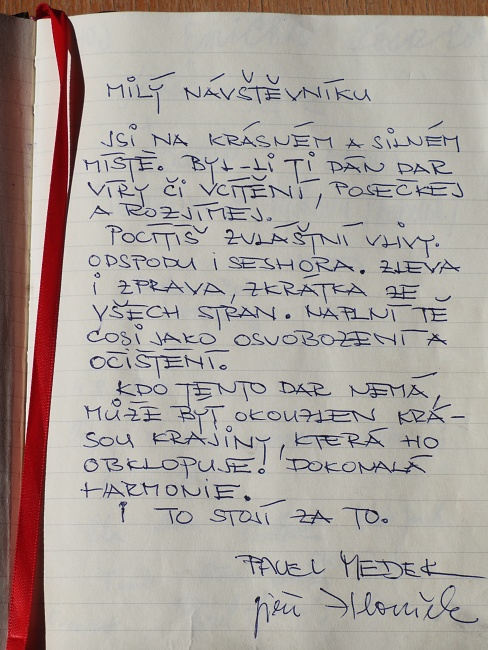 MILÝ NÁVŠTĚVNÍKU
JSI NA KRÁSNÉM A SILNÉM
MÍSTĚ. BYL-LI TI DÁN DAR
VÍRY ČI VCÍTĚNÍ, POSEČKEJ
A ROZJÍMEJ.
POCÍTÍŠ ZVLÁŠTNÍ VLIVY.
ODSPODU I SESHORA. ZLEVA
I ZPRAVA, ZKRÁTKA ZE
VŠECH STRAN. NAPLNÍ TĚ
COSI JAKO OSVOBOZENÍ A
OČIŠTĚNÍ.
KDO TENTO DAR NEMÁ,
MŮŽE BÝT OKOUZLEN KRÁ-
SOU KRAJINY, KTERÁ HO
OBKLOPUJE! DOKONALÁ
HARMONIE.
I TO STOJÍ ZA TO.
PAVEL MEDEK